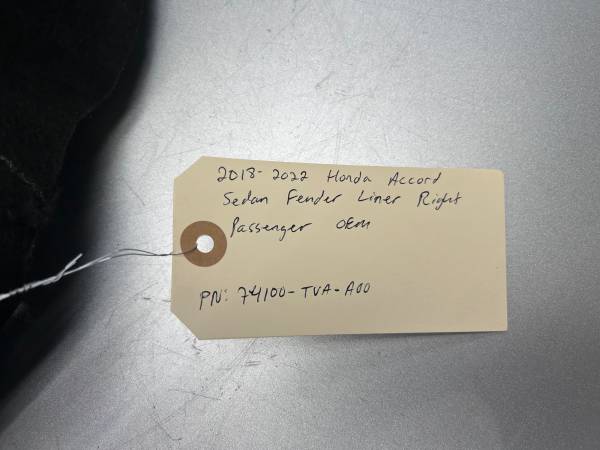 2018-2022 Honda Accord
Sedan Fender Liner Right
Passenger OEM
PN: 74100-TVA-A00